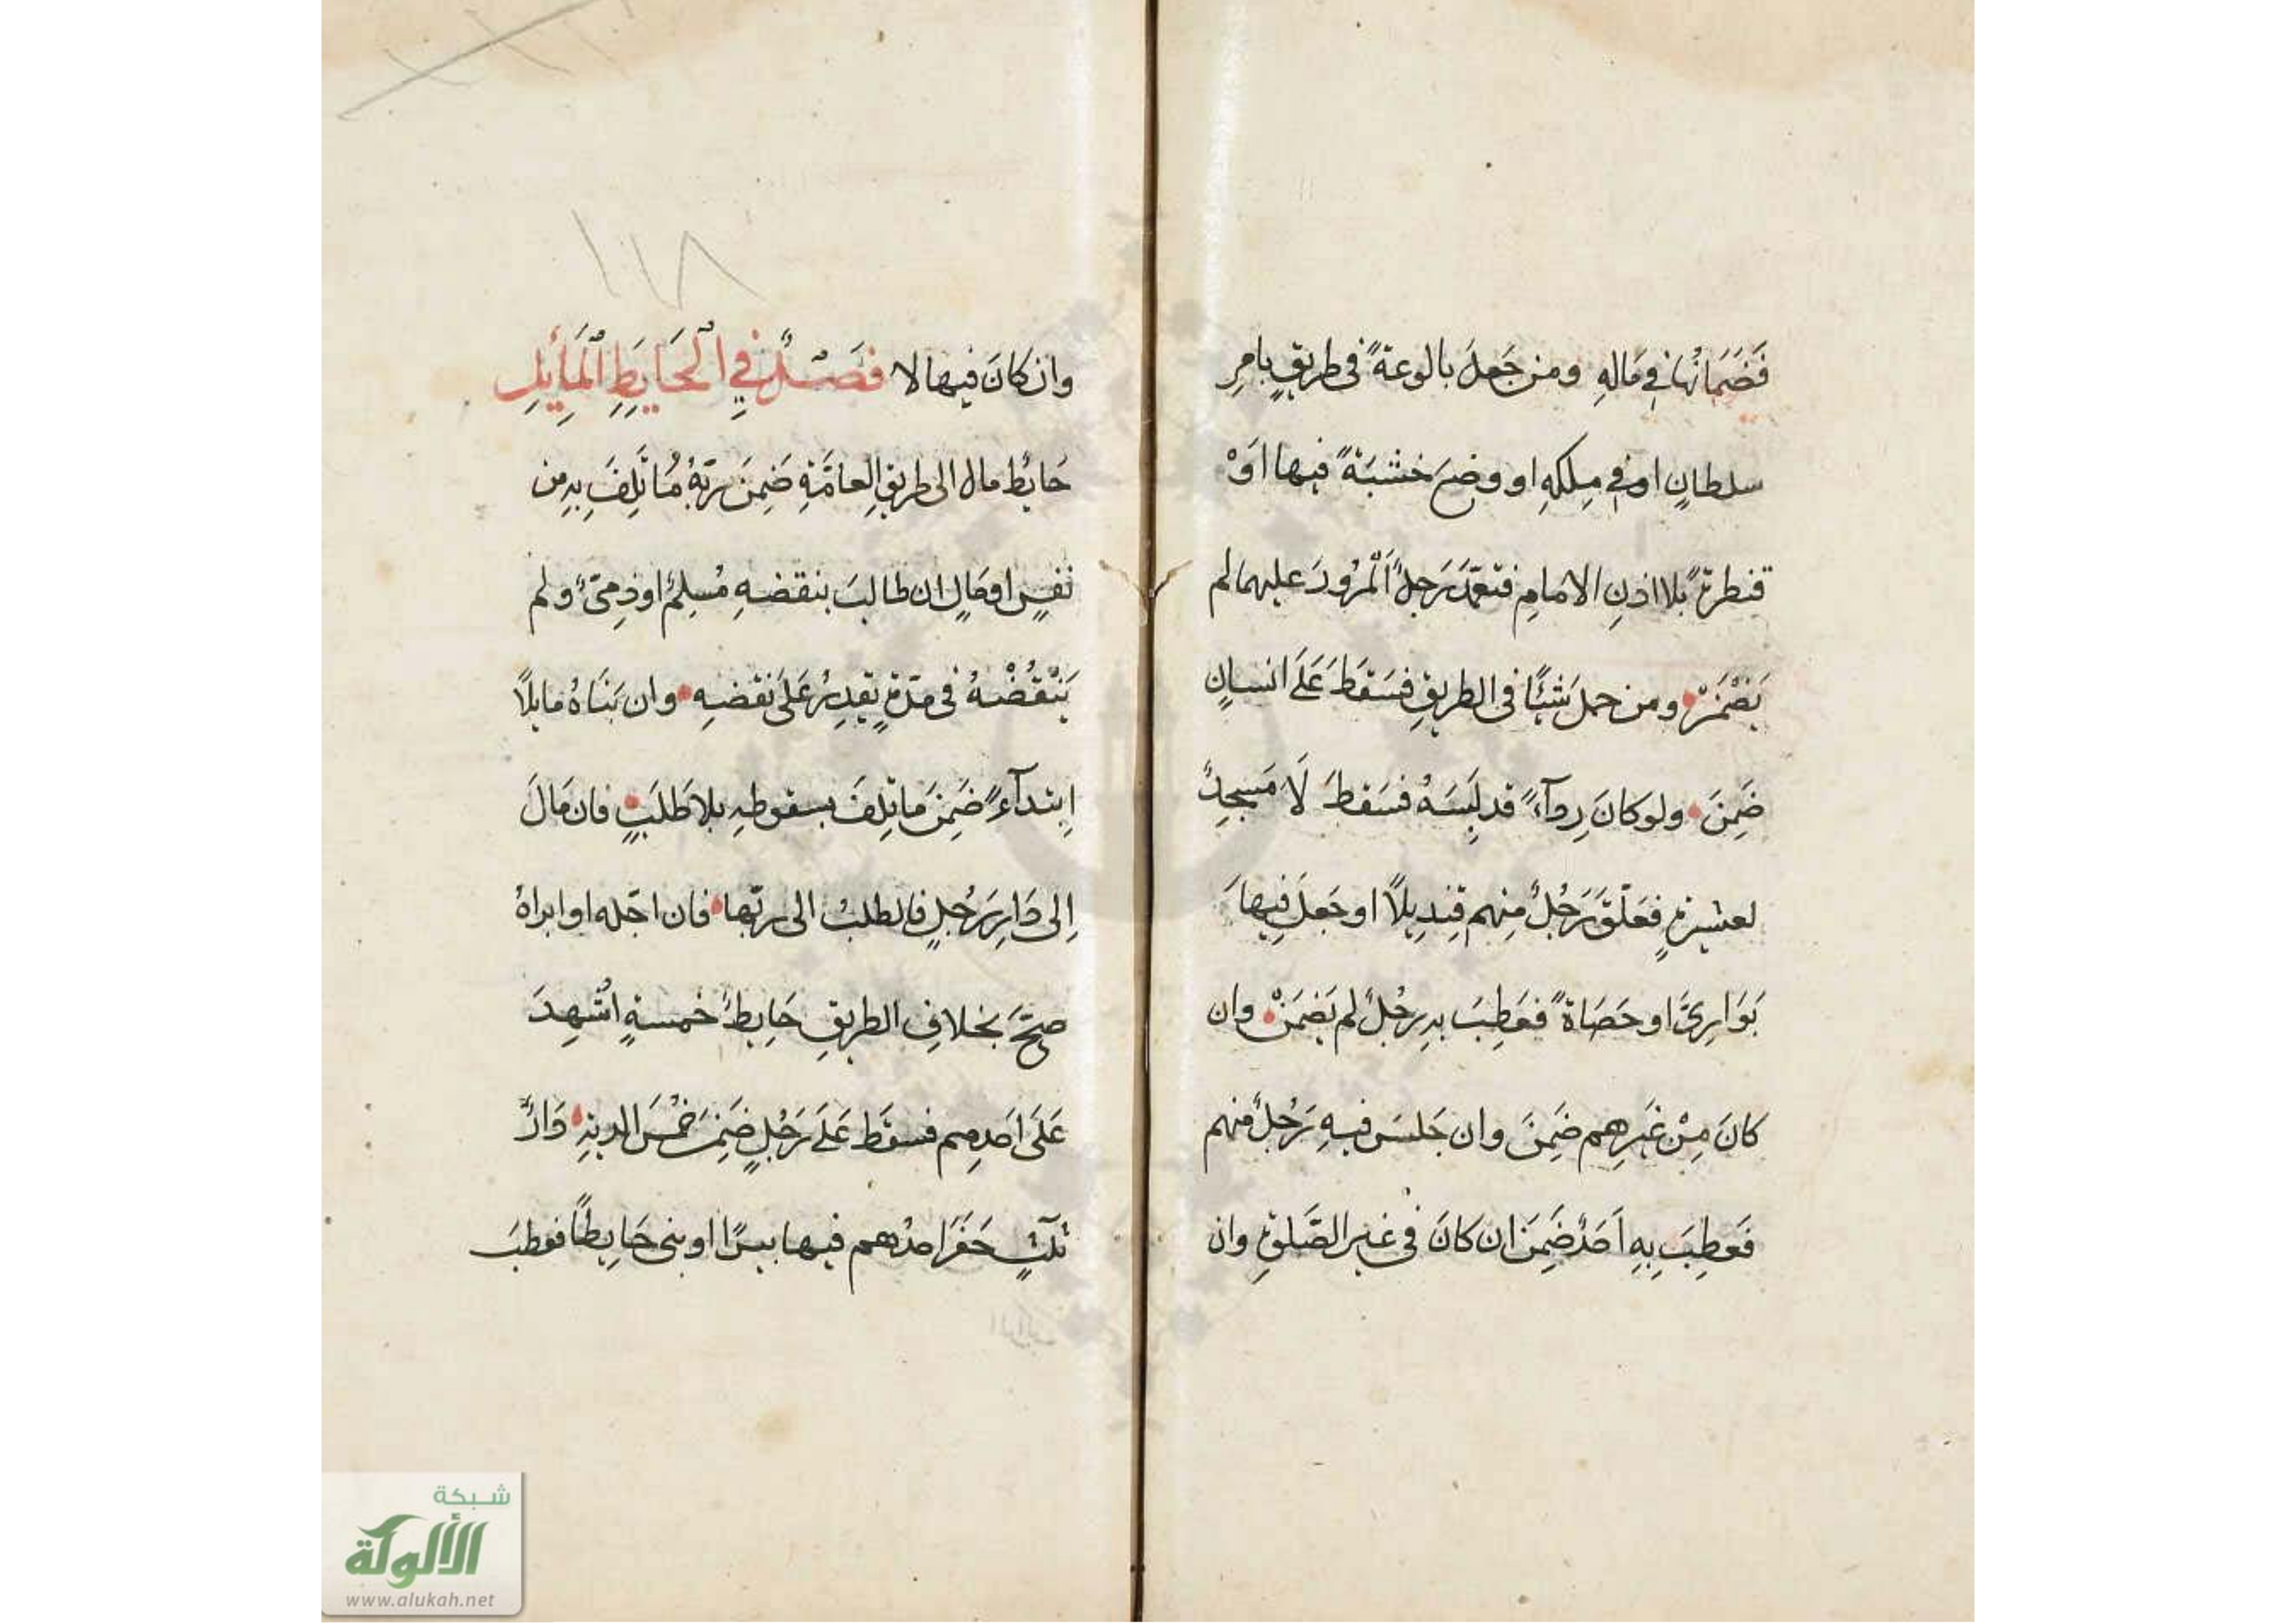 فَضَمَانُهَا فِي مَالِهِ ومن جَعلَ بالوعةً فى طريقٍ بامرِ
سلطانٍ او فِي مِلكهِ او وضعَ خشبَةً فيها اَوْ
قنطرةً بلا اذنِ الامَامِ فتعَمَّدَ رَجلٌ اَلْمرُورَ عليهما لم
يَضْمَنْ ومن حملَ شَيْئًا فى الطريقِ فسَقطَ عَلَى انسانٍ
ضَمِنَ ولو كانَ رِدآءً قد لَبِسَهُ فسَقطَ لَا مَسجِدٌ
لعشيرةٍ فعَلَّقَ رَجُلٌ مِنهم قِندِيلًا او جَعلَ فِيهَا
بَوَارِىَّ او حَصَاةً فعَطِبَ بِهِ رجُلٌ لم يَضمَنْ وان
كانَ مِنْ غَيرِهم ضَمِنَ وان جَلسَ فيهِ رَجُلٌ منهم
فَعطِبَ بِهِ اَحَدٌ ضَمِنَ ان كانَ فى غيرِ الصَّلٰوةِ وان
١١٨
وان كانَ فيها لا فَصْلٌ فِي الْحَايِطِ الْمَائِلِ
حَايطٌ مال الى طريقِ العامَّةِ ضَمِنَ رَبّهُ مَا تَلِفَ بهِ من
نفسٍ او مَالٍ ان طالبَ بنقضهِ مُسلِمٌ او ذِمىٌّ ولم
يَنْقُضْهُ فى مدّةٍ يقدِرُ عَلَى نقضهِ وان بَنَاهُ مايلًا
اِبتدآءً ضَمِنَ ما تلِفَ بسقوطهِ بلا طَلَبٍ فان مَالَ
اِلى دَارِ رَجُلٍ فالطلبُ الى ربّها فان اجّله او ابراهُ
صحَّ بخلافِ الطريقِ حَايطُ خمسةٍ اُشهِدَ
عَلَى اَحَدِهِم فسقَطَ عَلَى رَجُلٍ ضَمِنَ خُمْسَ الديةِ دَارٌ
ثلٰثٍ حَفَرَ احدُهم فيها بيرًا او بنى حَايِطًا فعطِبَ
شبكة
الألوكة
www.alukah.net